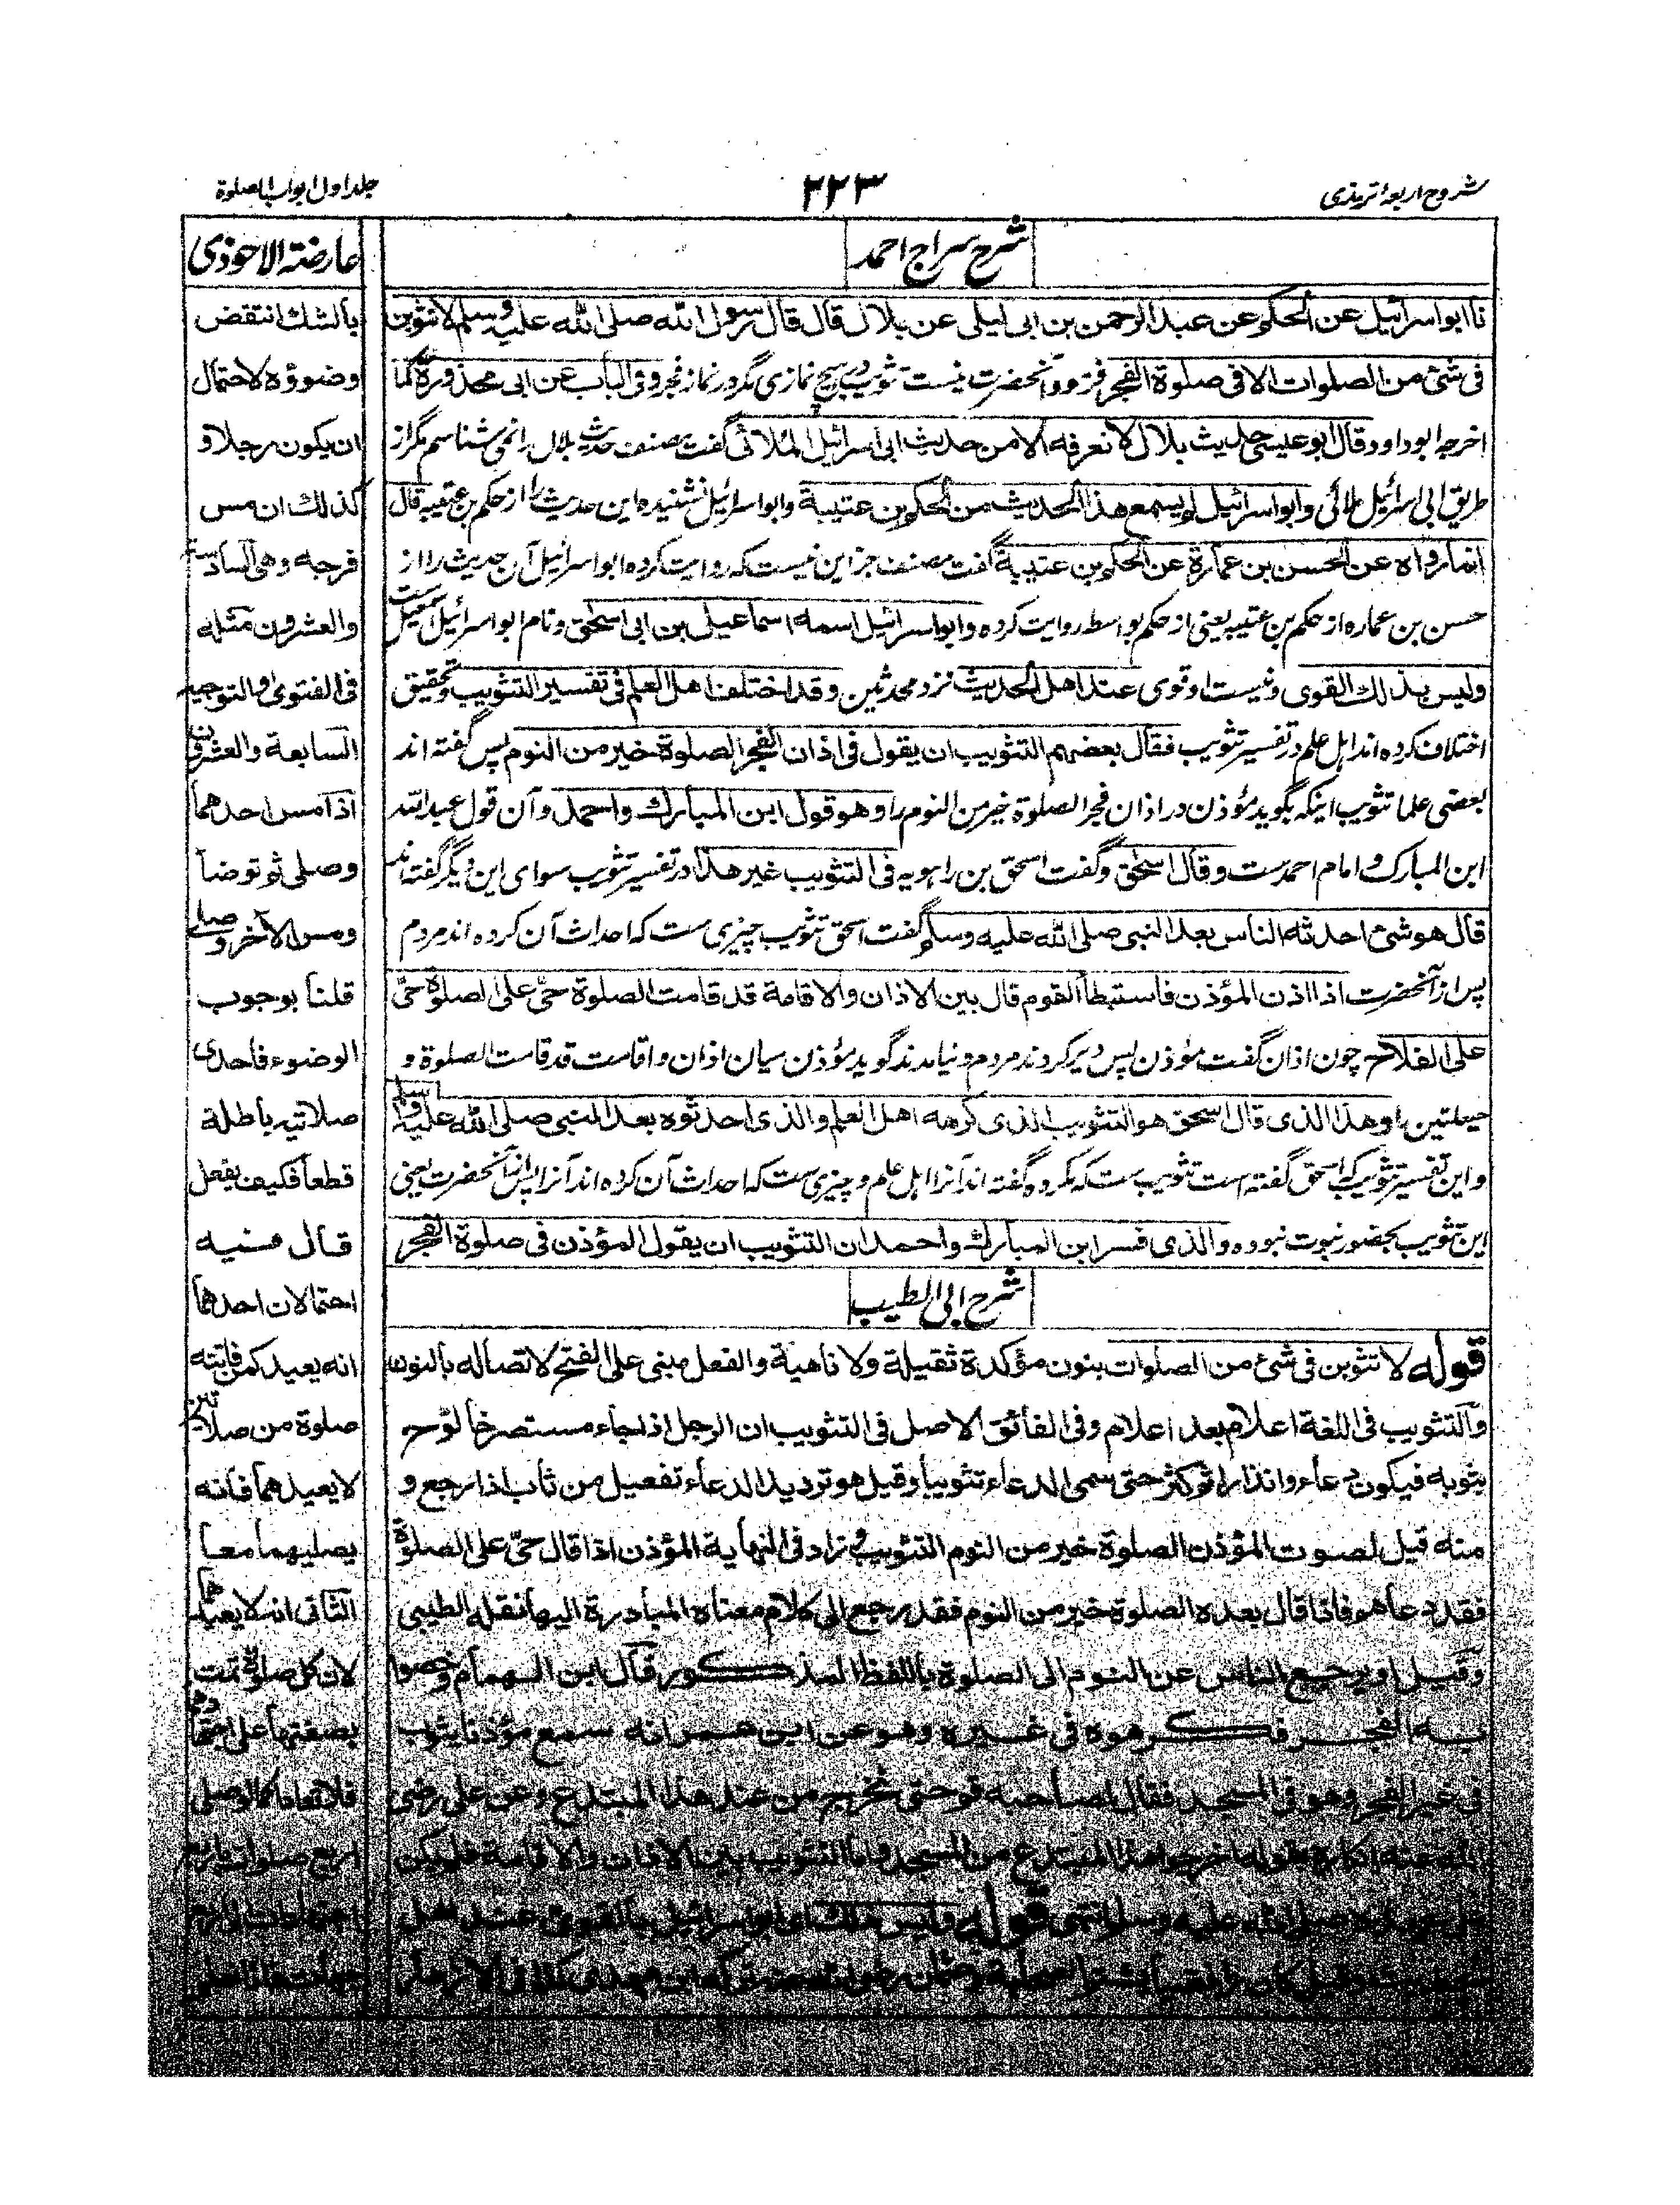 شروح اربعۂ ترمذی
۲۲۳
جلد اول ابواب الصلوة
شرح سراج احمد
نا ابو اسرائیل عن الحکم عن عبد الرحمن بن ابی لیلی عن بلال قال قال رسول الله صلی الله علیه وسلم لا تثوبن
فی شئ من الصلوات الا فی صلوة الفجر فرمود آنحضرت نیست تثویب در هیچ نمازی مگر در نماز فجر و فی الباب عن ابی محذورة کما
اخرجه ابو داود قال ابو عیسی حدیث بلال لا نعرفه الا من حدیث ابی اسرائیل الملائی گفت مصنف حدیث بلال را نمی شناسم مگر از
طریق ابی اسرائیل ملائی وابو اسرائیل لم یسمع هذا الحدیث من الحکم بن عتیبة وابو اسرائیل نشنیده این حدیث را از حکم بن عتیبه قال
انما رواه عن الحسن بن عمارة عن الحکم بن عتیبة گفت مصنف جز این نیست که روایت کرده ابو اسرائیل آن حدیث را از
حسن بن عماره از حکم بن عتیبه یعنی از حکم بواسطه روایت کرده وابو اسرائیل اسمه اسماعیل بن ابی اسحق ونام ابو اسرائیل اسمعیل ست
ولیس بذلك القوی ونیست او قوی عند اهل الحدیث نزد محدثین وقد اختلف اهل العلم فی تفسیر التثویب وتحقیق
اختلاف کرده اند اهل علم در تفسیر تثویب فقال بعضهم التثویب ان یقول فی اذان الفجر الصلوة خیر من النوم پس گفته اند
بعضی علما تثویب اینکه بگوید مؤذن در اذان فجر الصلوة خیر من النوم را وهو قول ابن المبارك واحمد وآن قول عبد الله
ابن المبارك و امام احمد ست وقال اسحق وگفت اسحق بن راهویه فی التثویب غیر هذا در تفسیر تثویب سوای این دیگر گفته اند
قال هو شئ احدثه الناس بعد النبی صلی الله علیه وسلم گفت اسحق تثویب چیزی ست که احداث آن کرده اند مردم
پس از آنحضرت اذا اذن المؤذن فاستبطأ القوم قال بین الاذان والاقامة قد قامت الصلوة حی علی الصلوة حی
علی الفلاح چون اذان گفت مؤذن پس دیر کردند مردم و نیامدند گوید مؤذن میان اذان واقامت قد قامت الصلوة و
حیعلتین را وهذا الذی قال اسحق هو التثویب الذی کرهه اهل العلم والذی احدثوه بعد النبی صلی الله علیه وسلم
واین تفسیر تثویب که اسحق گفته است تثویب ست که مکروه گفته اند آنرا اهل علم و چیزی ست که احداث آن کرده اند آنرا پس از آنحضرت یعنی
این تثویب بحضور نبوت نبوده والذی فسر ابن المبارك واحمد ان التثویب ان یقول المؤذن فی صلوة الفجر
شرح ابی الطیب
قوله لا تثوبن فی شئ من الصلوات بنون مؤکدة ثقیلة ولا ناهیة والفعل مبنی علی الفتح لاتصاله بالنون
والتثویب فی اللغة اعلام بعد اعلام وفی الفائق الاصل فی التثویب ان الرجل اذا جاء مستصرخا لوح
بثوبه فیکون دعاء وانذارا ثم کثر حتی سمی الدعاء تثویبا وقیل هو تردید الدعاء تفعیل من ثاب اذا رجع و
منه قیل لصوت المؤذن الصلوة خیر من النوم التثویب وزاد فی النهایة المؤذن اذا قال حی علی الصلوة
فقد دعاهم فاذا قال بعده الصلوة خیر من النوم فقد رجع الی کلام معناه المبادرة الیها نقله الطیبی
وقیل او یرجع الناس عن النوم الی الصلوة باللفظ المذکور قال ابن الهمام وخصوا
به الفجر فکرهوه فی غیره وهو عن ابن عمر انه سمع مؤذنا یثوب
فی غیر الفجر وهو فی المسجد فقال لصاحبه قم حتی نخرج من عند هذا المبتدع وعن علی رضی
الله عنه انکاره بقوله اخرجوا هذا المبتدع من المسجد واما التثویب بین الاذان والاقامة فلم یکن
علی عهده صلی الله علیه وسلم انتهی قوله ولیس بذلك ای ابو اسرائیل بالقوی عند اهل
عارضة الاحوذی
بالشك انتقض
وضوؤه لاحتمال
ان یکون رجلا و
کذلك ان مس
فرجه وهی السادسة
والعشرون مثله
فی الفتوی والتوجیه
السابعة والعشرون
اذا مس احدهما
وصلی ثم توضأ
ومس الآخر وصلی
قلنا بوجوب
الوضوء فاحدی
صلاتیه باطلة
قطعا فکیف یفعل
قال فیه
احتمالان احدهما
انه یعید کمن فاتته
صلوة من صلاتین
لا یعیدهما فانه
یصلیهما معا
الثانی انه لا یعیدهما
لان کل صلوة تمت
بصفتها علی اجتهاد
فلا تعاد کما لو صلی
اربع صلوات باربع